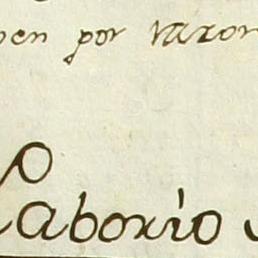 por razon
Laborio